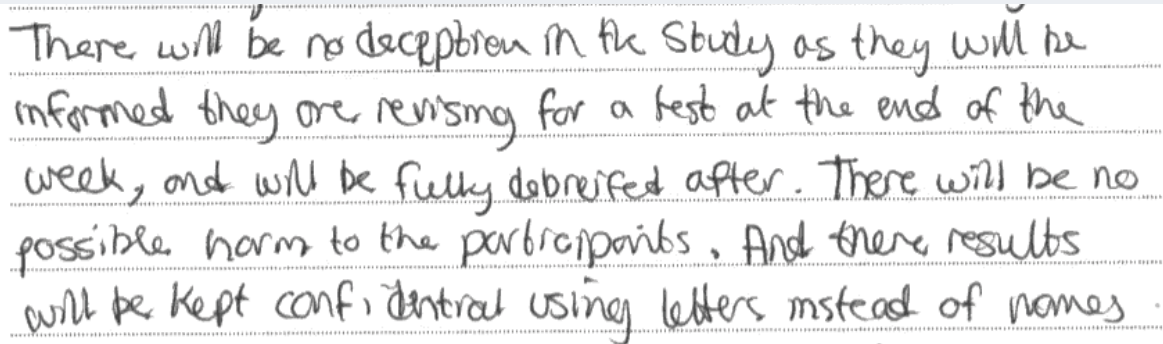 There will be no deception in the study as they will be
informed they are revising for a test at the end of the
week, and will be fully debreifed after. There will be no
possible harm to the participants. And there results
will be kept confidential using letters instead of names.